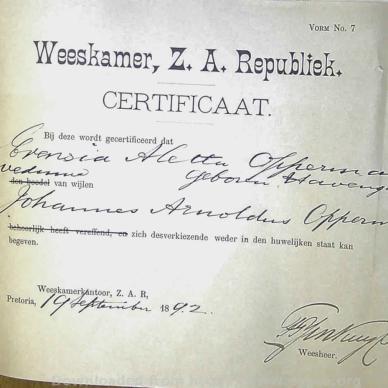 Vorm No. 7
Weeskamer, Z. A. Republiek.
CERTIFICAAT.
Bij deze wordt gecertificeerd dat
Aletta Opperma
geboren
den boedel van wijlen
Johannes Arnoldus Opperm
behoorlijk heeft vereffend, en zich desverkiezende weder in den huwelijken staat kan
begeven.
Weeskamerkantoor, Z. A. R,
Pretoria, 19 September 1892.
Weesheer.